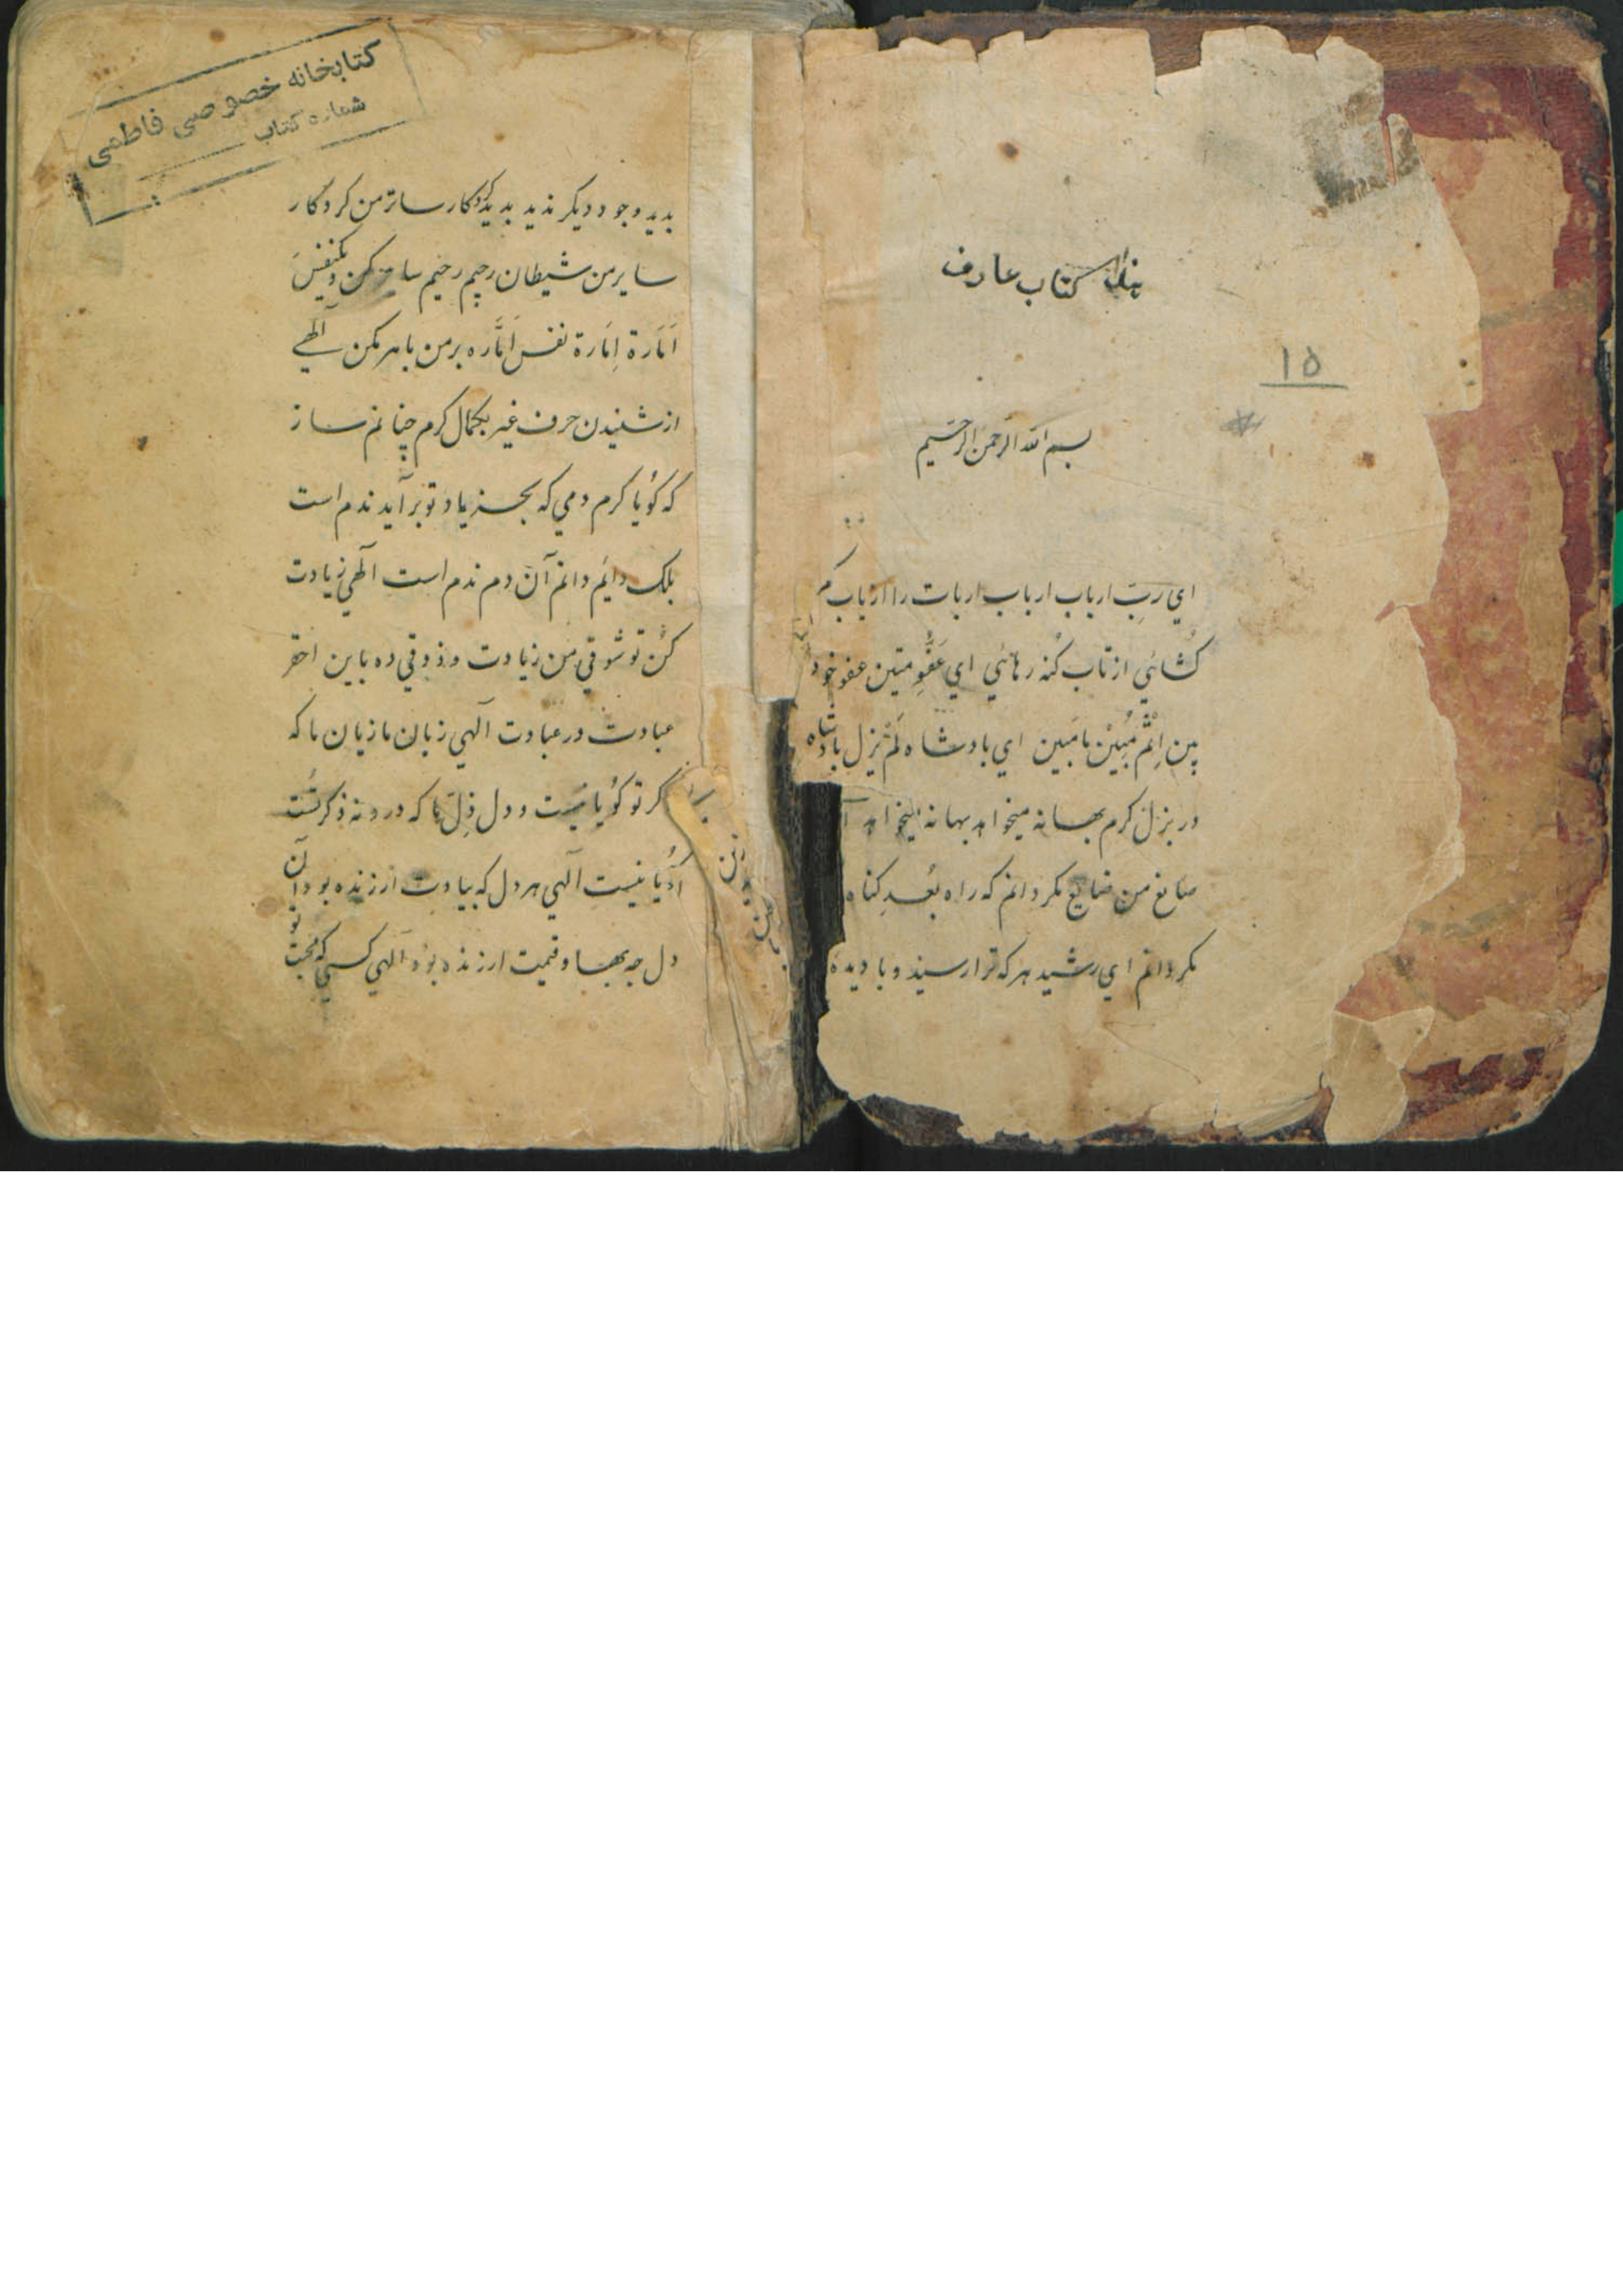 هذا کتاب عارف
۱۵
بسم الله الرحمن الرحیم
اي ربّ ارباب ارباب اربات را ارباب
کُشائي از تاب کُنه رهائي اي عَفُّوِ متین عفو خود
بین اِثْم مُبِیْن مابین اي بادشاه لَمْ یَزل بادشاه
در بزل کرم بهانه میخواهد بهانه میخواهد
صانع من ضایع مکردانم که راه بُعدِ کناه
مکردانم اي رشید هرکه ترا رسید و با دیدهٔ
کتابخانه خصوصی فاطمی
شماره کتاب
بدید وجود دیکر ندید بدید کردکار ساتر من کردکار
سایر من شیطان رجیم رحیم مکن و یکنفس
اَمَارة اِمَارة نفس اَمَّاره بر من باهر مکن الهي
از شنیدن حرف غیر بکمال کرم چنانم ساز
که کویا کرم دمي که بجز یاد تو بر آید ندم است
بلک دایم دانم آن دم ندم است الهي زیادت
کن تو شوقي من زیادت و ذوقي ده باین احقر
عبادت در عبادت آلهي زبان ما زیان ما که
کر تو کویا نیست و دل ذِلّ ما که در و نه ذکر تست
نیست آلهي هر دل که بیادت ارزنده بود آن
دل چه بها و قیمت ارزنده بود آلهي کسي که محبت تو